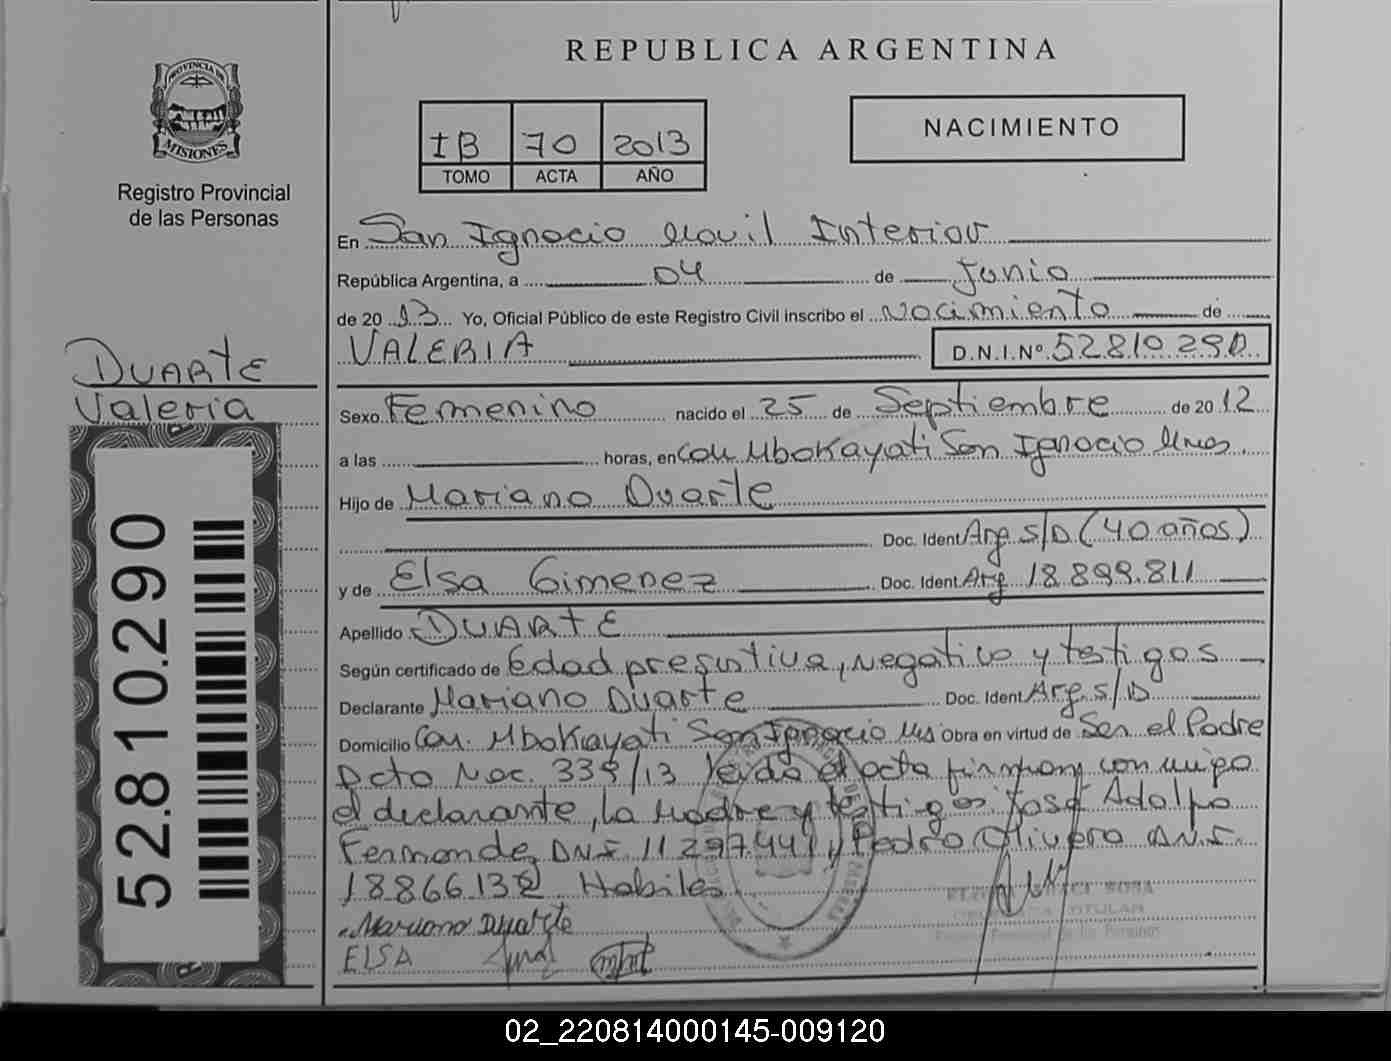 REPUBLICA ARGENTINA
PROVINCIA DE
MISIONES
Registro Provincial
de las Personas
IB 70 2013
TOMO ACTA AÑO
NACIMIENTO
En San Ignacio Movil Interior
República Argentina, a 04 de Junio
de 20 13 Yo, Oficial Público de este Registro Civil inscribo el Nacimiento de
VALERIA D.N.I.Nº 52810290
DUARTE
Valeria
Sexo Femenino nacido el 25 de Septiembre de 20 12
a las horas, en Com Mbokayati San Ignacio Mnes.
Hijo de Mariano Duarte
Doc. Ident Arg S/D (40 años)
y de Elsa Gimenez Doc. Ident. Arg 18.899.811
Apellido DUARTE
Según certificado de Edad presuntiva, negativo y testigos
Declarante Mariano Duarte Doc. Ident. Arg. S/D
Domicilio Com. Mbokayati San Ignacio Mns Obra en virtud de Ser el Padre
Dcto Nac. 339/13 leida el acta firman con migo
el declarante, la Madre y testigos José Adolfo
Fernandez DNI 11297441 y Pedro Olivera D.N.I.
18866132 Habiles
Mariano Duarte
ELSA
52810290
02_220814000145-009120